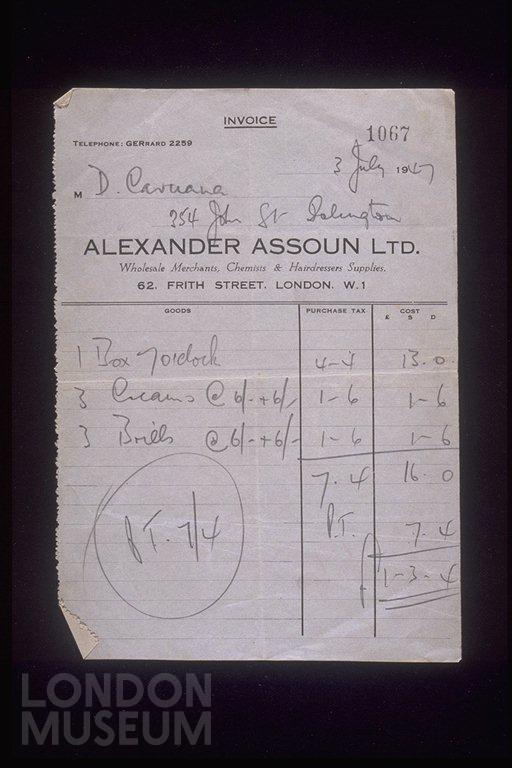 INVOICE
1067
TELEPHONE: GERRARD 2259
3 July 1947
M D. Caruana
354 John St Islington
ALEXANDER ASSOUN LTD.
Wholesale Merchants, Chemists & Hairdressers Supplies.
62. FRITH STREET. LONDON. W.1
GOODS PURCHASE TAX COST
£ S D
1 Box 4-4 13.0.
3 Creams @ 6/- + 6/- 1-6 1-6
3 Brills @ 6/- + 6/- 1-6 1-6
7.4 16.0
P.T. 7/4 P.T. 7.4
£1-3-4
LONDON
MUSEUM